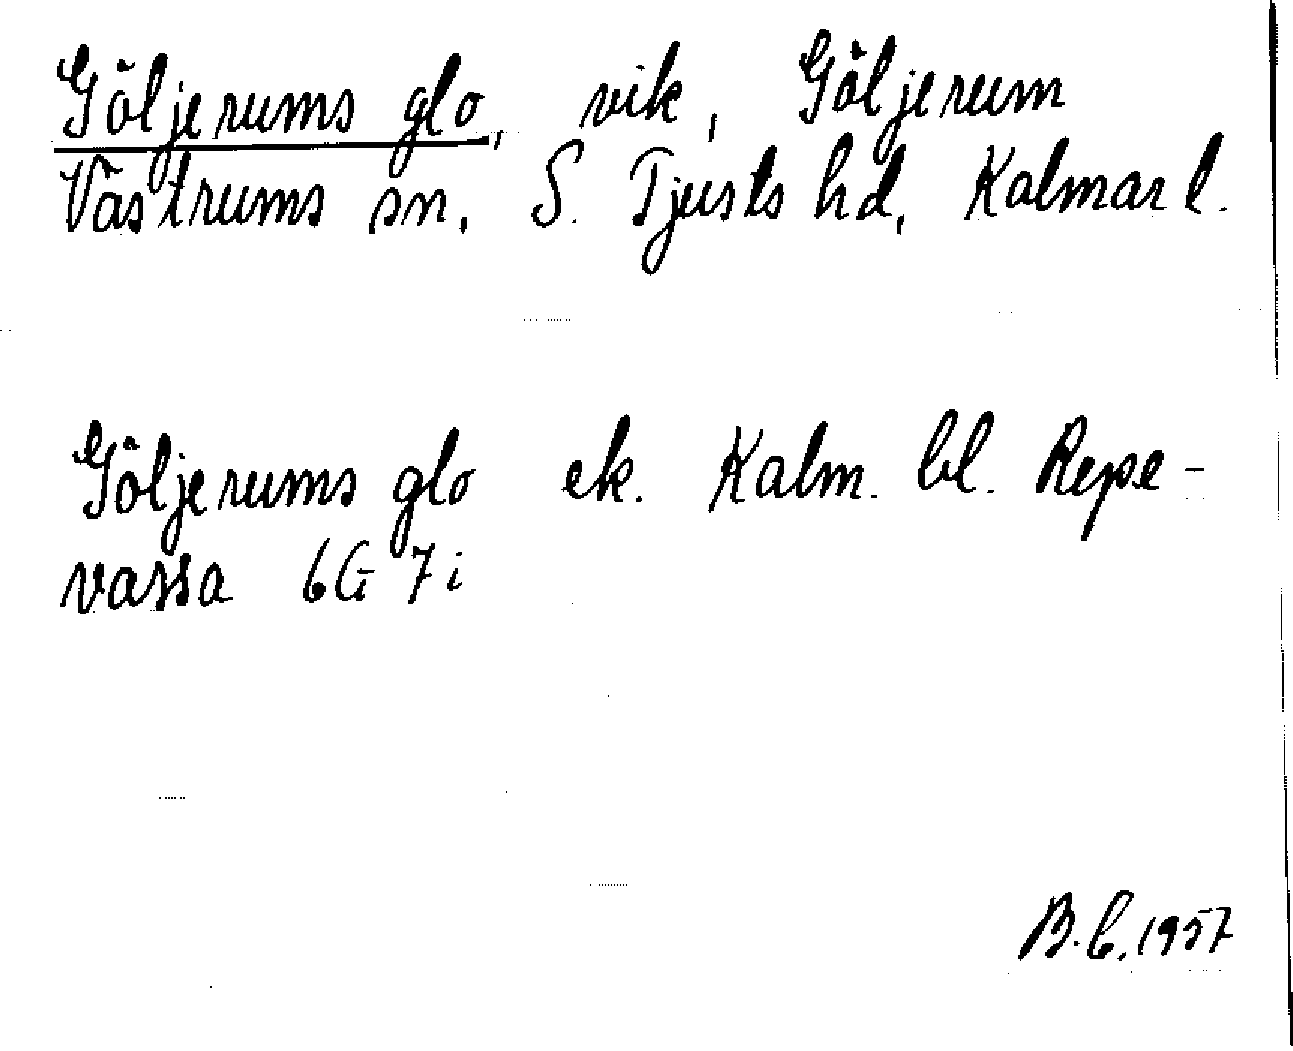 Göljerums glo, vik, Göljerum
Västrums sn. S. Tjusts hd, Kalmar l.
Göljerums glo ek. Kalm. bl. Repe-
vassa 6G 7i
B.C. 1957